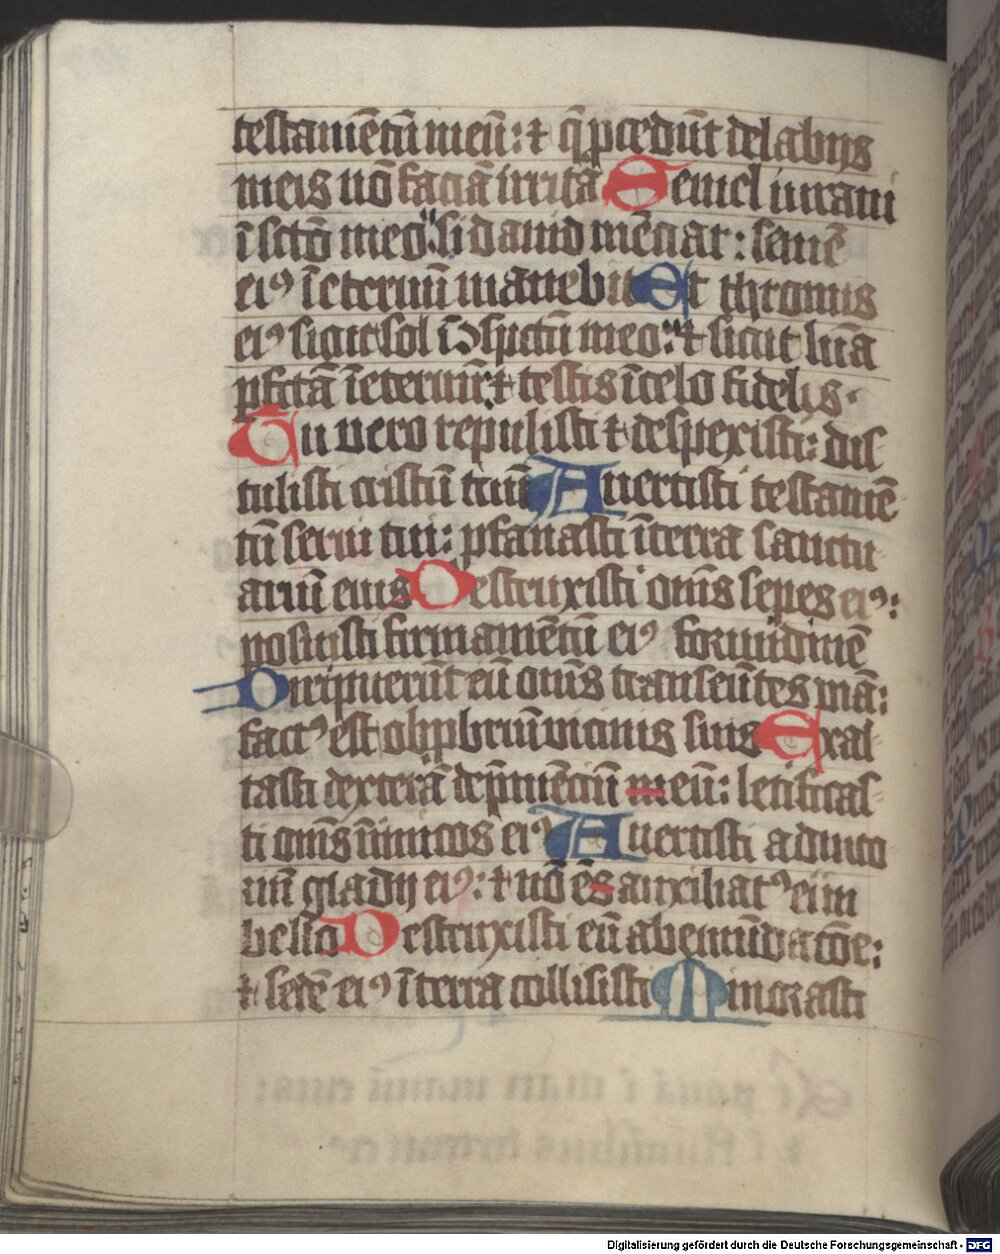 testamētū meū: ⁊ q̄ p̱cedūt de labijs
meis nō faciā irrita Semel iuraui
ī sctō meo: si dauid mēciar: semē
eiꝰ ī eternū manebit Et thronus
eiꝰ sicut sol ī ɔspctū meo: ⁊ sicut luna
pfctā ī eternū: ⁊ testis ī celo fidelis.
Tu vero repulisti ⁊ despexisti: dis
tulisti cristū tuū Auertisti testamē
tū serui tui: pfanasti ī terra sanctu
ariū eius Destruxisti om̄s sepes eiꝰ:
posuisti firmamētū eiꝰ formidinē
Diripuerūt eū om̄s transeūtes viā:
factꝰ est obp̱briū vicinis suis Exal
tasti dexterā dep̄mētiū eū: letificas-
ti om̄s īimicos eiꝰ Auertisti adiuto
riū gladij eiꝰ: ⁊ nō es auxiliatꝰ ei in
bello Destruxisti eū ab emūdatōe:
⁊ sedē eiꝰ ī terra collisisti Minorasti
Digitalisierung gefördert durch die Deutsche Forschungsgemeinschaft - DFG